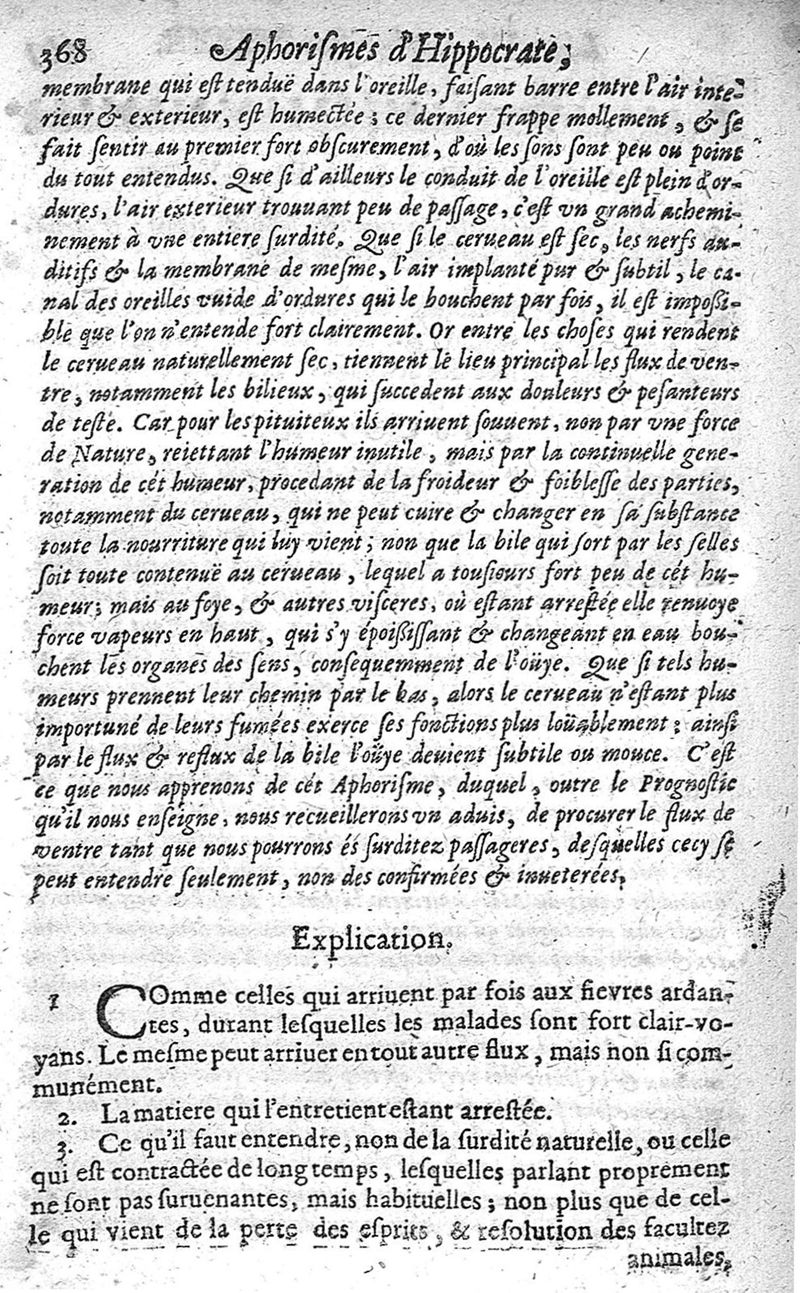 368 Aphoriſmes d'Hippocrate;
membrane qui eſt tenduë dans l'oreille, faiſant barre entre l'air inte-
rieur & exterieur, eſt humectée; ce dernier frappe mollement, & ſe
fait ſentir au premier fort obſcurement, d'où les ſons ſont peu ou point
du tout entendus. Que ſi d'ailleurs le conduit de l'oreille eſt plein d'or-
dures, l'air exterieur trouuant peu de paſſage, c'eſt vn grand achemi-
nement à vne entiere ſurdité. Que ſi le cerueau eſt ſec, les nerfs au-
ditifs & la membrane de meſme, l'air implanté pur & ſubtil, le ca-
nal des oreilles vuide d'ordures qui le bouchent par fois, il eſt impoſſi-
ble que l'on n'entende fort clairement. Or entre les choſes qui rendent
le cerueau naturellement ſec, tiennent le lieu principal les flux de ven-
tre, notamment les bilieux, qui ſuccedent aux douleurs & peſanteurs
de teſte. Car pour les pituiteux ils arriuent ſouuent, non par vne force
de Nature, reiettant l'humeur inutile, mais par la continuelle gene-
ration de cét humeur, procedant de la froideur & foibleſſe des parties,
notamment du cerueau, qui ne peut cuire & changer en ſa ſubſtance
toute la nourriture qui luy vient; non que la bile qui ſort par les ſelles
ſoit toute contenuë au cerueau, lequel a touſiours fort peu de cét hu-
meur; mais au foye, & autres viſceres, où eſtant arreſtée elle renuoye
force vapeurs en haut, qui s'y époiſſiſſant & changeant en eau bou-
chent les organes des ſens, conſequemment de l'oüye. Que ſi tels hu-
meurs prennent leur chemin par le bas, alors le cerueau n'eſtant plus
importuné de leurs fumées exerce ſes fonctions plus loüablement; ainſi
par le flux & reflux de la bile l'oüye deuient ſubtile ou mouce. C'eſt
ce que nous apprenons de cét Aphoriſme, duquel, outre le Prognoſtic
qu'il nous enſeigne, nous recueillerons vn aduis, de procurer le flux de
ventre tant que nous pourrons és ſurditez paſſageres, deſquelles cecy ſe
peut entendre ſeulement, non des confirmées & inueterées.
Explication.
1 COmme celles qui arriuent par fois aux fievres ardan-
tes, durant leſquelles les malades ſont fort clair-vo-
yans. Le meſme peut arriuer en tout autre flux, mais non ſi com-
munément.
2. La matiere qui l'entretient eſtant arreſtée.
3. Ce qu'il faut entendre, non de la ſurdité naturelle, ou celle
qui eſt contractée de long temps, leſquelles parlant proprement
ne ſont pas ſuruenantes, mais habituelles; non plus que de cel-
le qui vient de la perte des eſprits, & reſolution des facultez
animales,